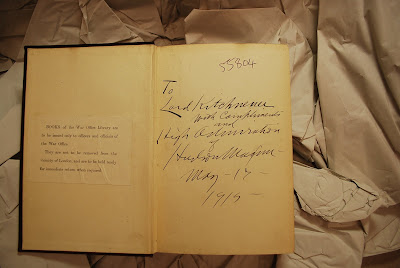 BOOKS of the War Office Library are
to be issued only to officers and officials of
the War Office.
They are not to be removed from the
vicinity of London and are to be held ready
for immediate return when required.
55804
To
Lord Kitchnener
with Compliments
and
High Admiration
of
Hudson Maxim
May - 17 -
1915